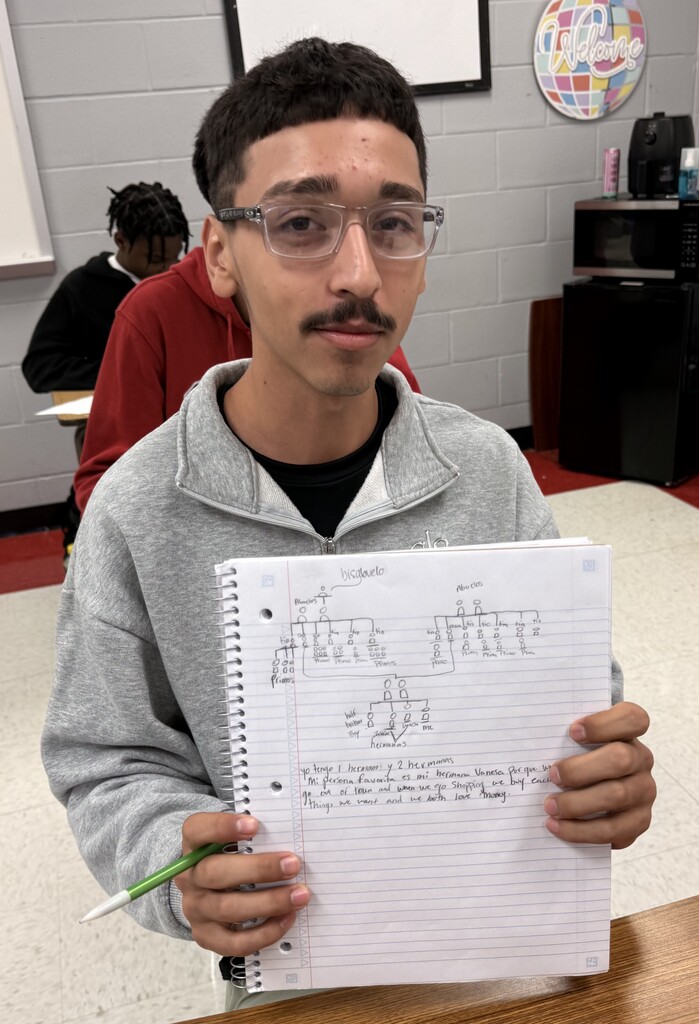 Welcome
bisabuelo
Abuelos
Abuelos
tio tio tio
tio tio tio tio
Primo Primos Primos
Primos
Primo Primo Primo Primo
half
brother
me
hermanas
yo tengo 1 hermano y 2 hermanas
Mi persona favorita es mi hermana Vanesa Porque w
go out of town and when we go shopping we buy each
things we want and we both love money.